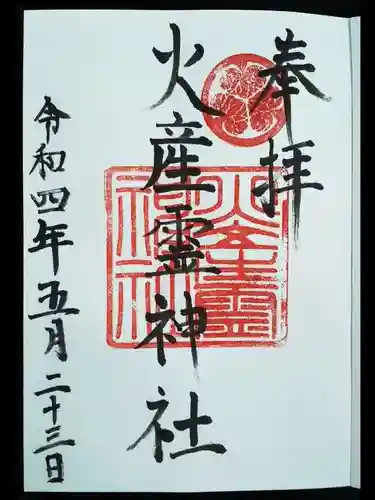 奉拝
火産霊神社
令和四年五月二十三日
火産霊
神社